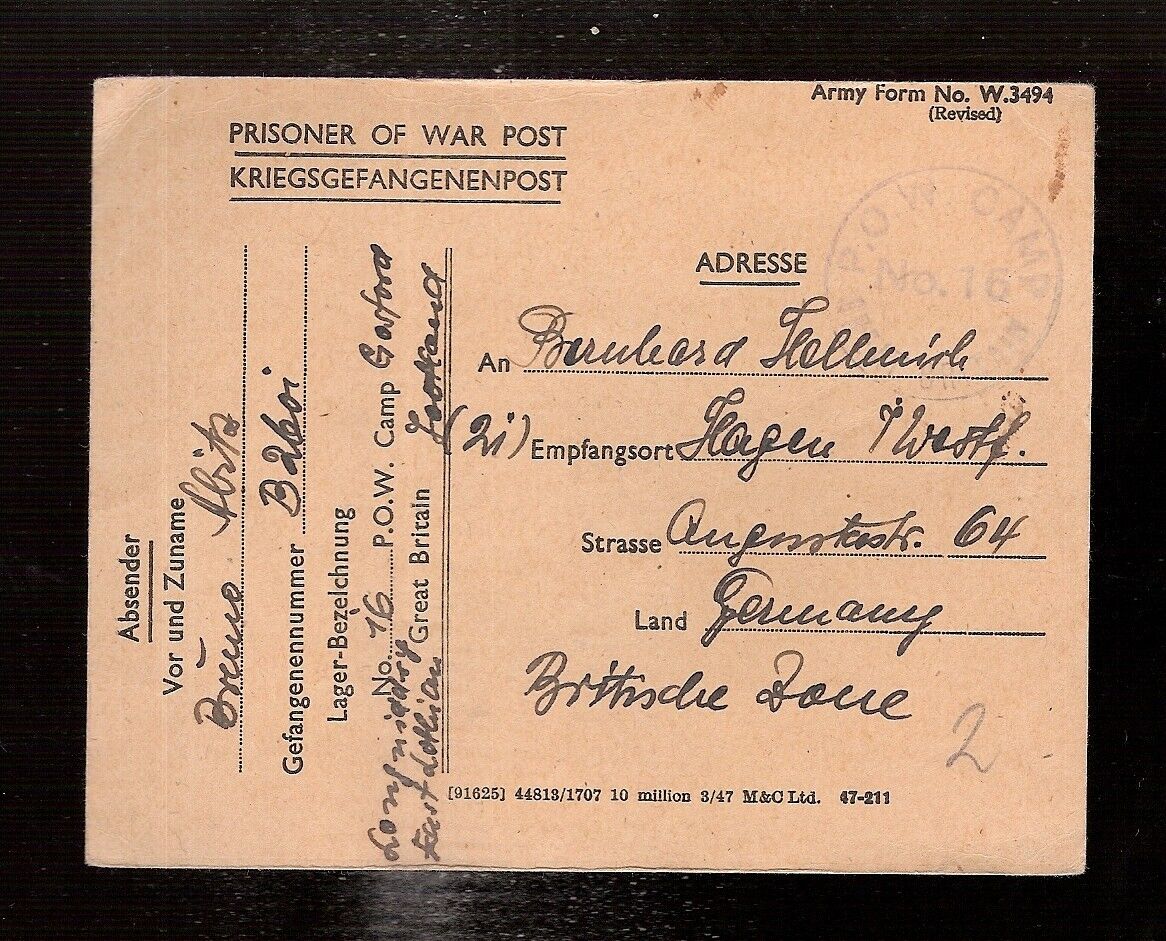 Army Form No. W.3494
(Revised)
PRISONER OF WAR POST
KRIEGSGEFANGENENPOST
P.O.W. CAMP
No. 16
ADRESSE
An Bernhard Hellmich
(21) Empfangsort Hagen i/Westf.
Strasse Augustastr. 64
Land Germany
Britische Zone
2
Absender
Vor und Zuname
Bruno Abitz
Gefangenennummer B 2601
Lager-Bezeichnung
No. 16 P.O.W. Camp Gosford
Longniddry Great Britain
East Lothian Scotland
[91625] 44813/1707 10 million 3/47 M&C Ltd. 47-211